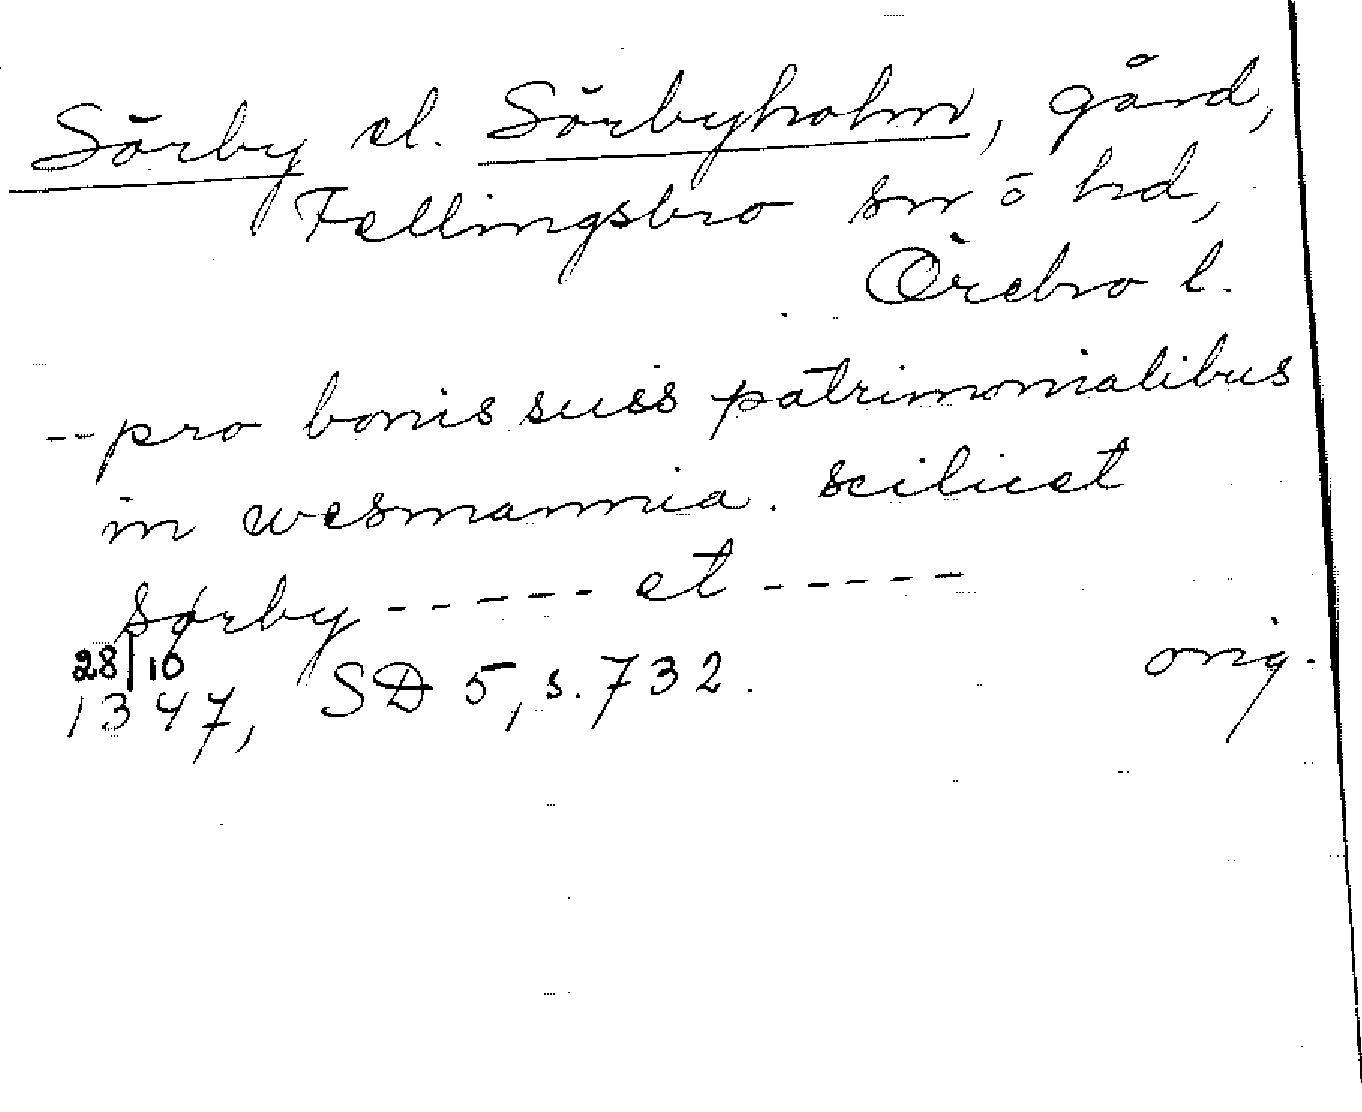 Sörby el. Sörbyholm, gård,
Fellingsbro sn o hd,
Örebro l.
-- pro bonis suis patrimonialibus
in wesmannia. scilicet
sørby ----- et -----
28/10
1347, SD 5, s. 732. orig.